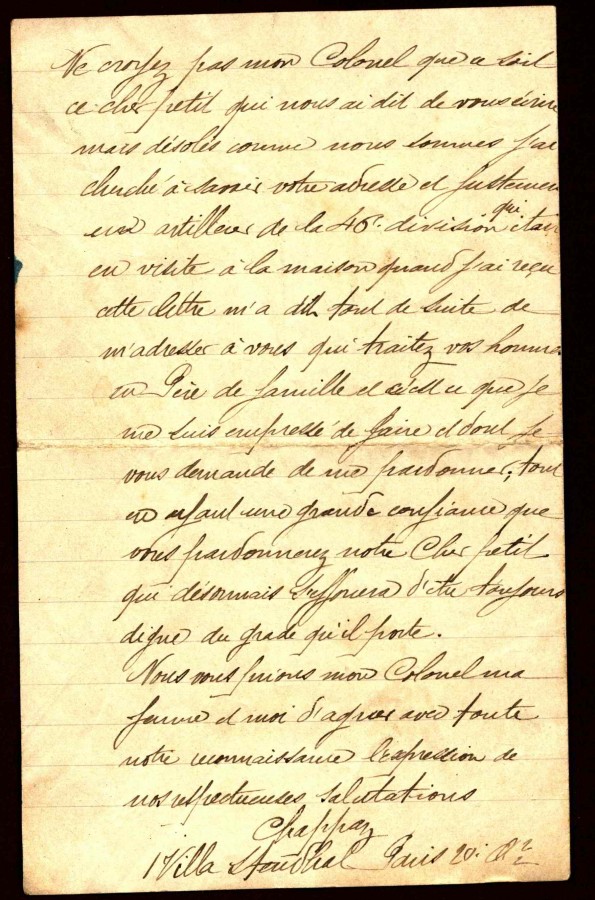 Ne croyez pas mon Colonel que ce soit
ce cher petit qui nous ai dit de vous écrire
mais désolés comme nous sommes j'ai
cherché à savoir votre adresse et justement
un artilleur de la 46e division qui était
en visite à la maison quand j'ai reçu
cette lettre m'a dit tout de suite de
m'adresser à vous qui traitez vos hommes
en Père de famille et c'est ce que je
me suis empressé de faire et dont je
vous demande de me pardonner, tout
en ayant une grande confiance que
vous pardonnerez notre Cher petit
qui désormais s'efforcera d'être toujours
digne du grade qu'il porte.
Nous vous prions mon Colonel ma
femme et moi d'agréer avec toute
notre reconnaissance l'expression de
nos respectueuses salutations
Chappaz
1 Villa Stendhal Paris 20e